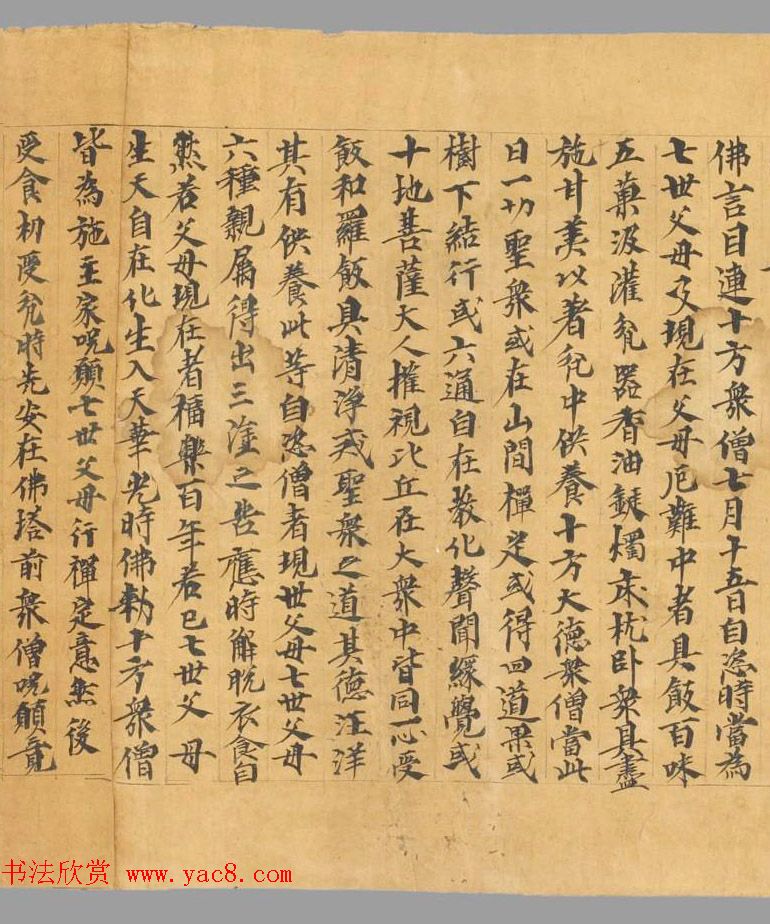 佛言目連十方衆僧七月十五日自恣時當為
七世父母及現在父母厄難中者具飯百味
五菓汲灌瓫器香油錠燭床枕卧衆具盡
施甘美以著瓫中供養十方大德衆僧當此
日一切聖衆或在山間禪定或得四道果或
樹下結行或六通自在教化聲聞緣覺或
十地菩薩大人權視比丘在大衆中皆同一心受
飯和羅飯具清淨戒聖衆之道其德汪洋
其有供養此等自恣僧者現世父母七世父母
六種親屬得出三塗之苦應時解脫衣食自
然若父母現在者福樂百年若已七世父母
生天自在化生入天華光時佛勑十方衆僧
皆為施主家呪願七世父母行禪定意然後
受食初受瓫時先安在佛塔前衆僧呪願竟
书法欣赏 www.yac8.com